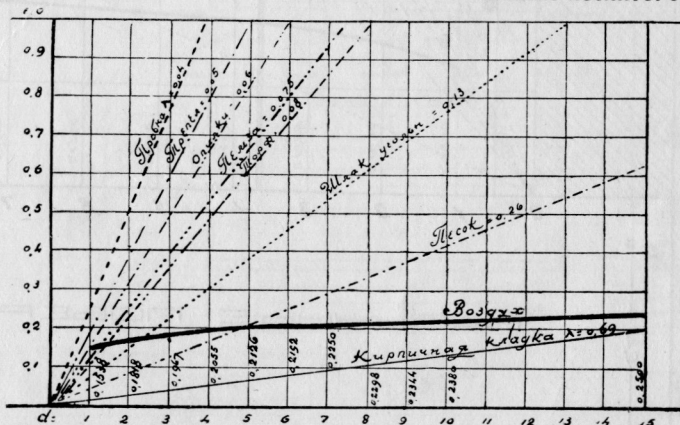 1.0
0,9
0,8
0,7
0,6
0,5
0,4
0,3
0,2
0,1
Пробка λ=0.04
Трепел = 0.05
Опилки = 0.06
Пемза = 0.075
Торф = 0.08
Шлак угольн = 0,13
Песок = 0.26
Воздух
Кирпичная кладка λ=0,69
0.1538
0.1818
0.1947
0.2055
0.2126
0.2192
0.2250
0.2298
0.2344
0.2380
0.2500
d= 1 2 3 4 5 6 7 8 9 10 11 12 13 14 15